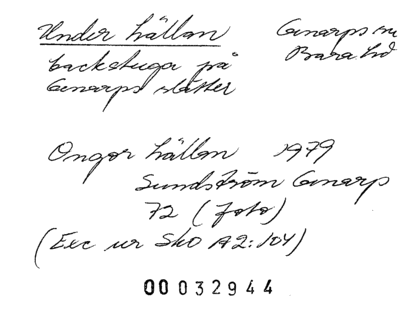 Under hällan Genarps sn
backstuga på Bara hd
Genarps slätter
Ongor hällan 1979
Sundström Genarp
72 (foto)
(Exc ur Sko A2:104)
00032944